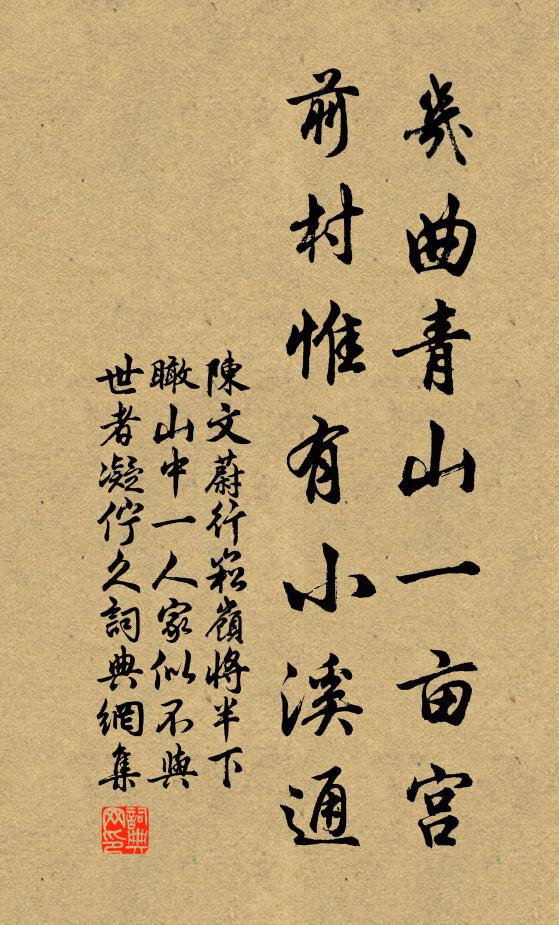 幾曲青山一亩宫
前村惟有小溪通
陳文蔚行崧嶺將半下
瞰山中一人家似不與
世者凝佇久詞典網集
詞典
网印